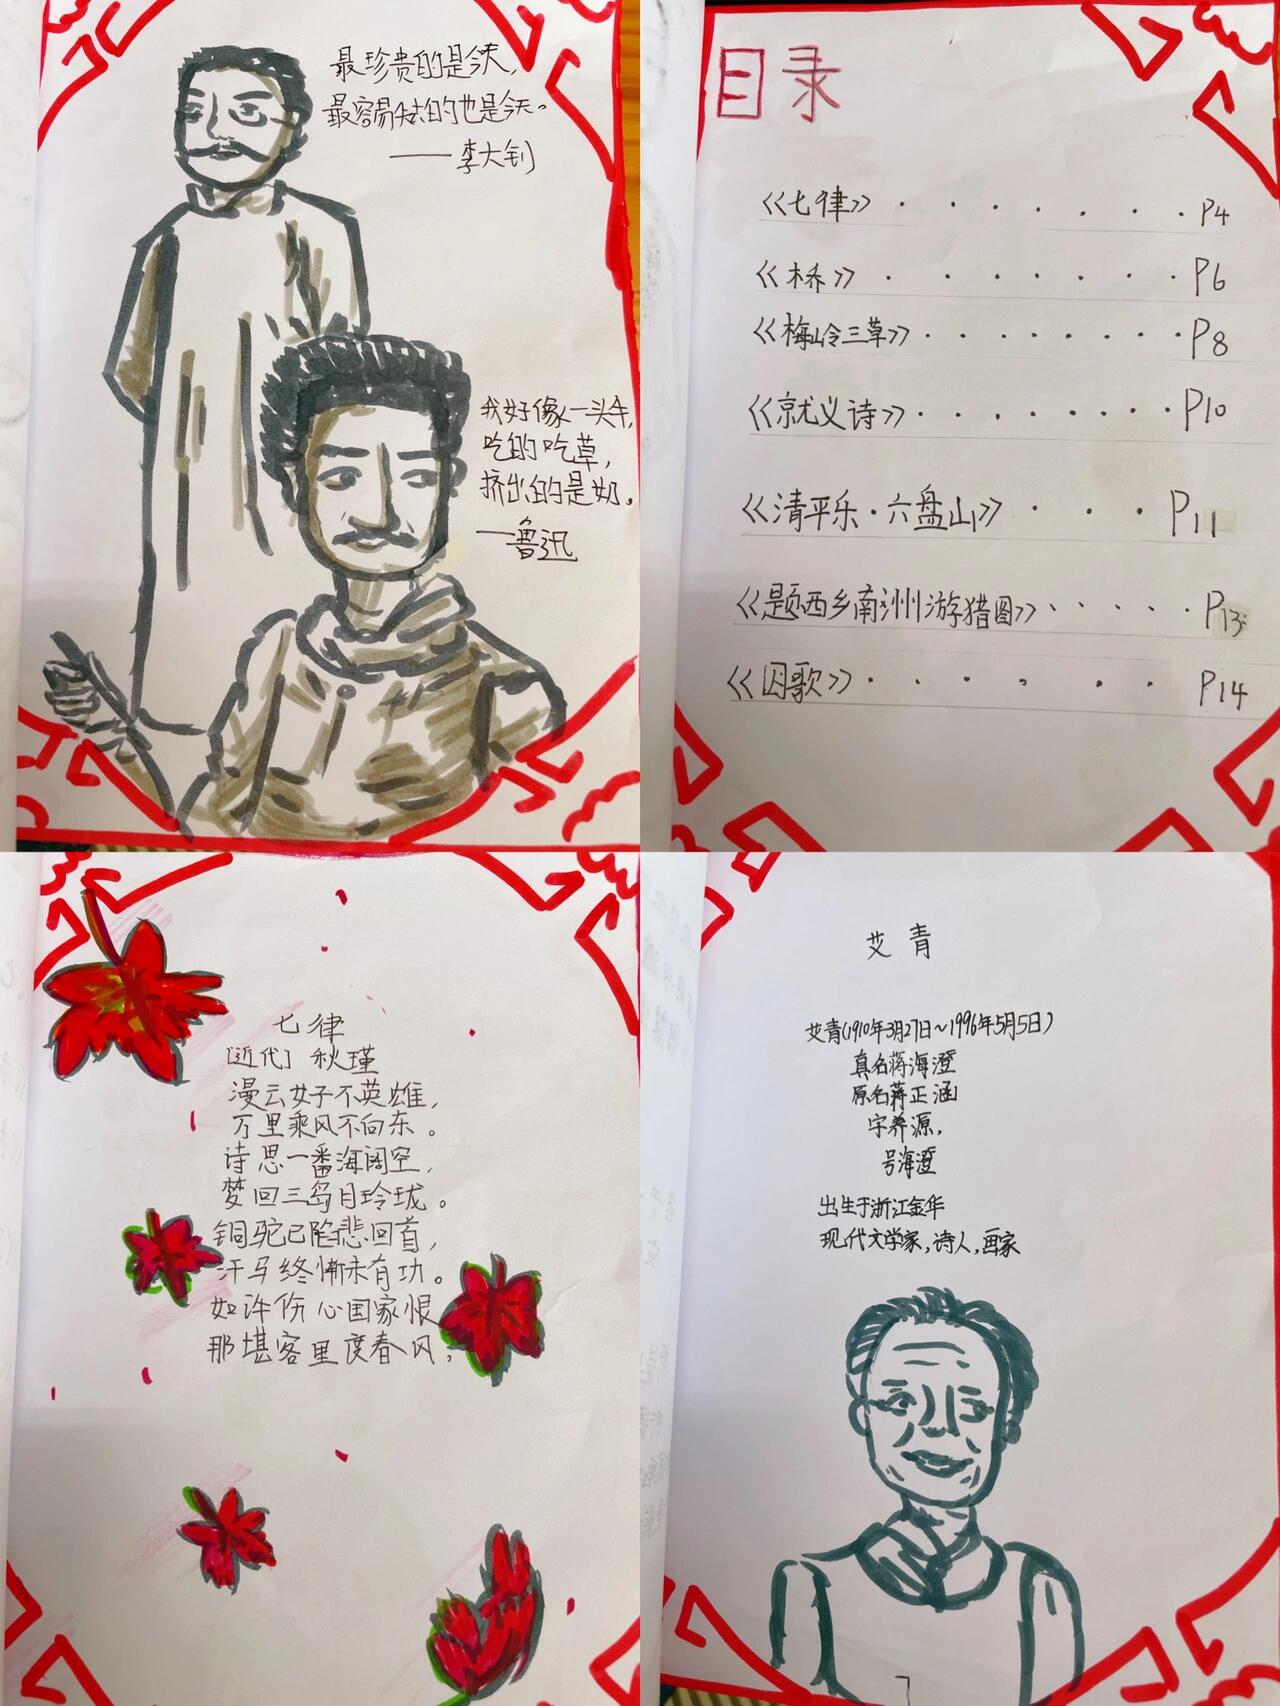 最珍贵的是今天,
最容易失掉的也是今天。
——李大钊
我好像一头牛,
吃的吃草,
挤出的是奶。
—鲁迅
目录
《七律》········P4
《桥》········P6
《梅岭三草》········P8
《就义诗》········P10
《清平乐·六盘山》····P11
《题西乡南洲游猎图》·····P13
《囚歌》······P14
七律
[近代] 秋瑾
漫云女子不英雄,
万里乘风不向东。
诗思一番海阔空,
梦回三岛月玲珑。
铜驼已陷悲回首,
汗马终惭未有功。
如许伤心国家恨
那堪客里度春风,
艾青
艾青(1910年3月27日~1996年5月5日)
真名蒋海澄
原名蒋正涵
字养源,
号海澄
出生于浙江金华
现代文学家,诗人,画家
7